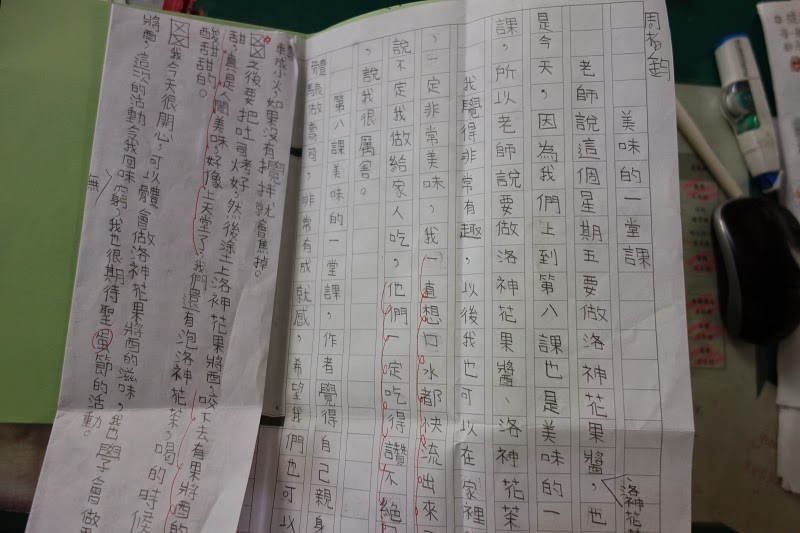 周
美味的一堂課
老師說這個星期五要做洛神花果醬，也
洛神花茶
是今天，因為我們上到第八課也是美味的一
課，所以老師說要做洛神花果醬、洛神花茶
我覺得非常有趣，以後我也可以在家裡
，一定非常美味，我一直想口水都快流出來
說不定我做給家人吃，他們一定吃得讚不絕
，說我很厲害。
第八課美味的一堂課，作者覺得自己親身
體驗做，非常有成就感，希望我們也可以
成小火，如果沒有攪拌就會焦掉。
之後要把吐司烤好，然後涂上洛神花果將酉，咬下去有果將酉的
甜，真是人間美味，好像上天堂了，我們還有泡洛神花茶，喝的時候
酸甜甜的。
我今天很開心，可以體會做洛神花果將酉的滋味，我也學會做果
將酉，這次的活動令我回味窮，我也很期待聖蛋節的活動。
無